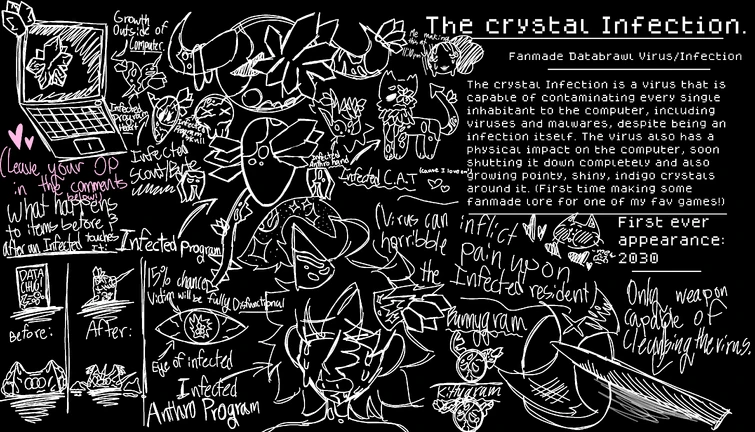 The crystal Infection.
Fanmade Databrawl Virus/Infection
The crystal Infection is a virus that is
capable of contaminating every single
inhabitant to the computer, including
viruses and malwares, despite being an
infection itself. The virus also has a
physical impact on the computer, soon
shutting it down completely and also
growing pointy, shiny, indigo crystals
around it. (First time making some
fanmade lore for one of my fav games!)
First ever
appearance:
2030
Growth
Outside of
Computer
Me making
this at
Infected
Program
Heart
Infected
Program
Skull
Infected
Scout Byte
Infected
Anthro hand
Infected C.A.T
(cause I love em)
Infected program
(Leave your OP
in the comments
below!)
What happens
to items before &
after an Infected touches
it:
DATA
CHUG!
Before:
After:
15% chance
Victim will be fully Disfunctional
Eye of infected
Infected
Anthro Program
(Virus can inflict
horrible pain upon
the Infected resident)
Bunnygram
Kittygram
Only weapon
capable of
cleansing the virus.